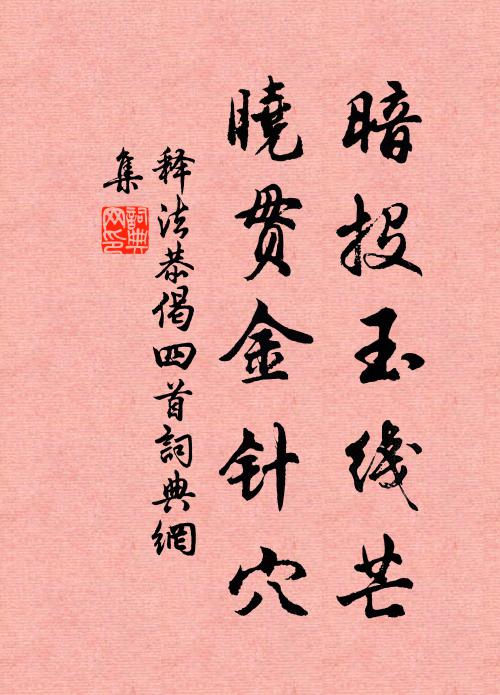 暗投玉线芒
曉贯金针穴
释法恭偈四首詞典網
集
詞典网印